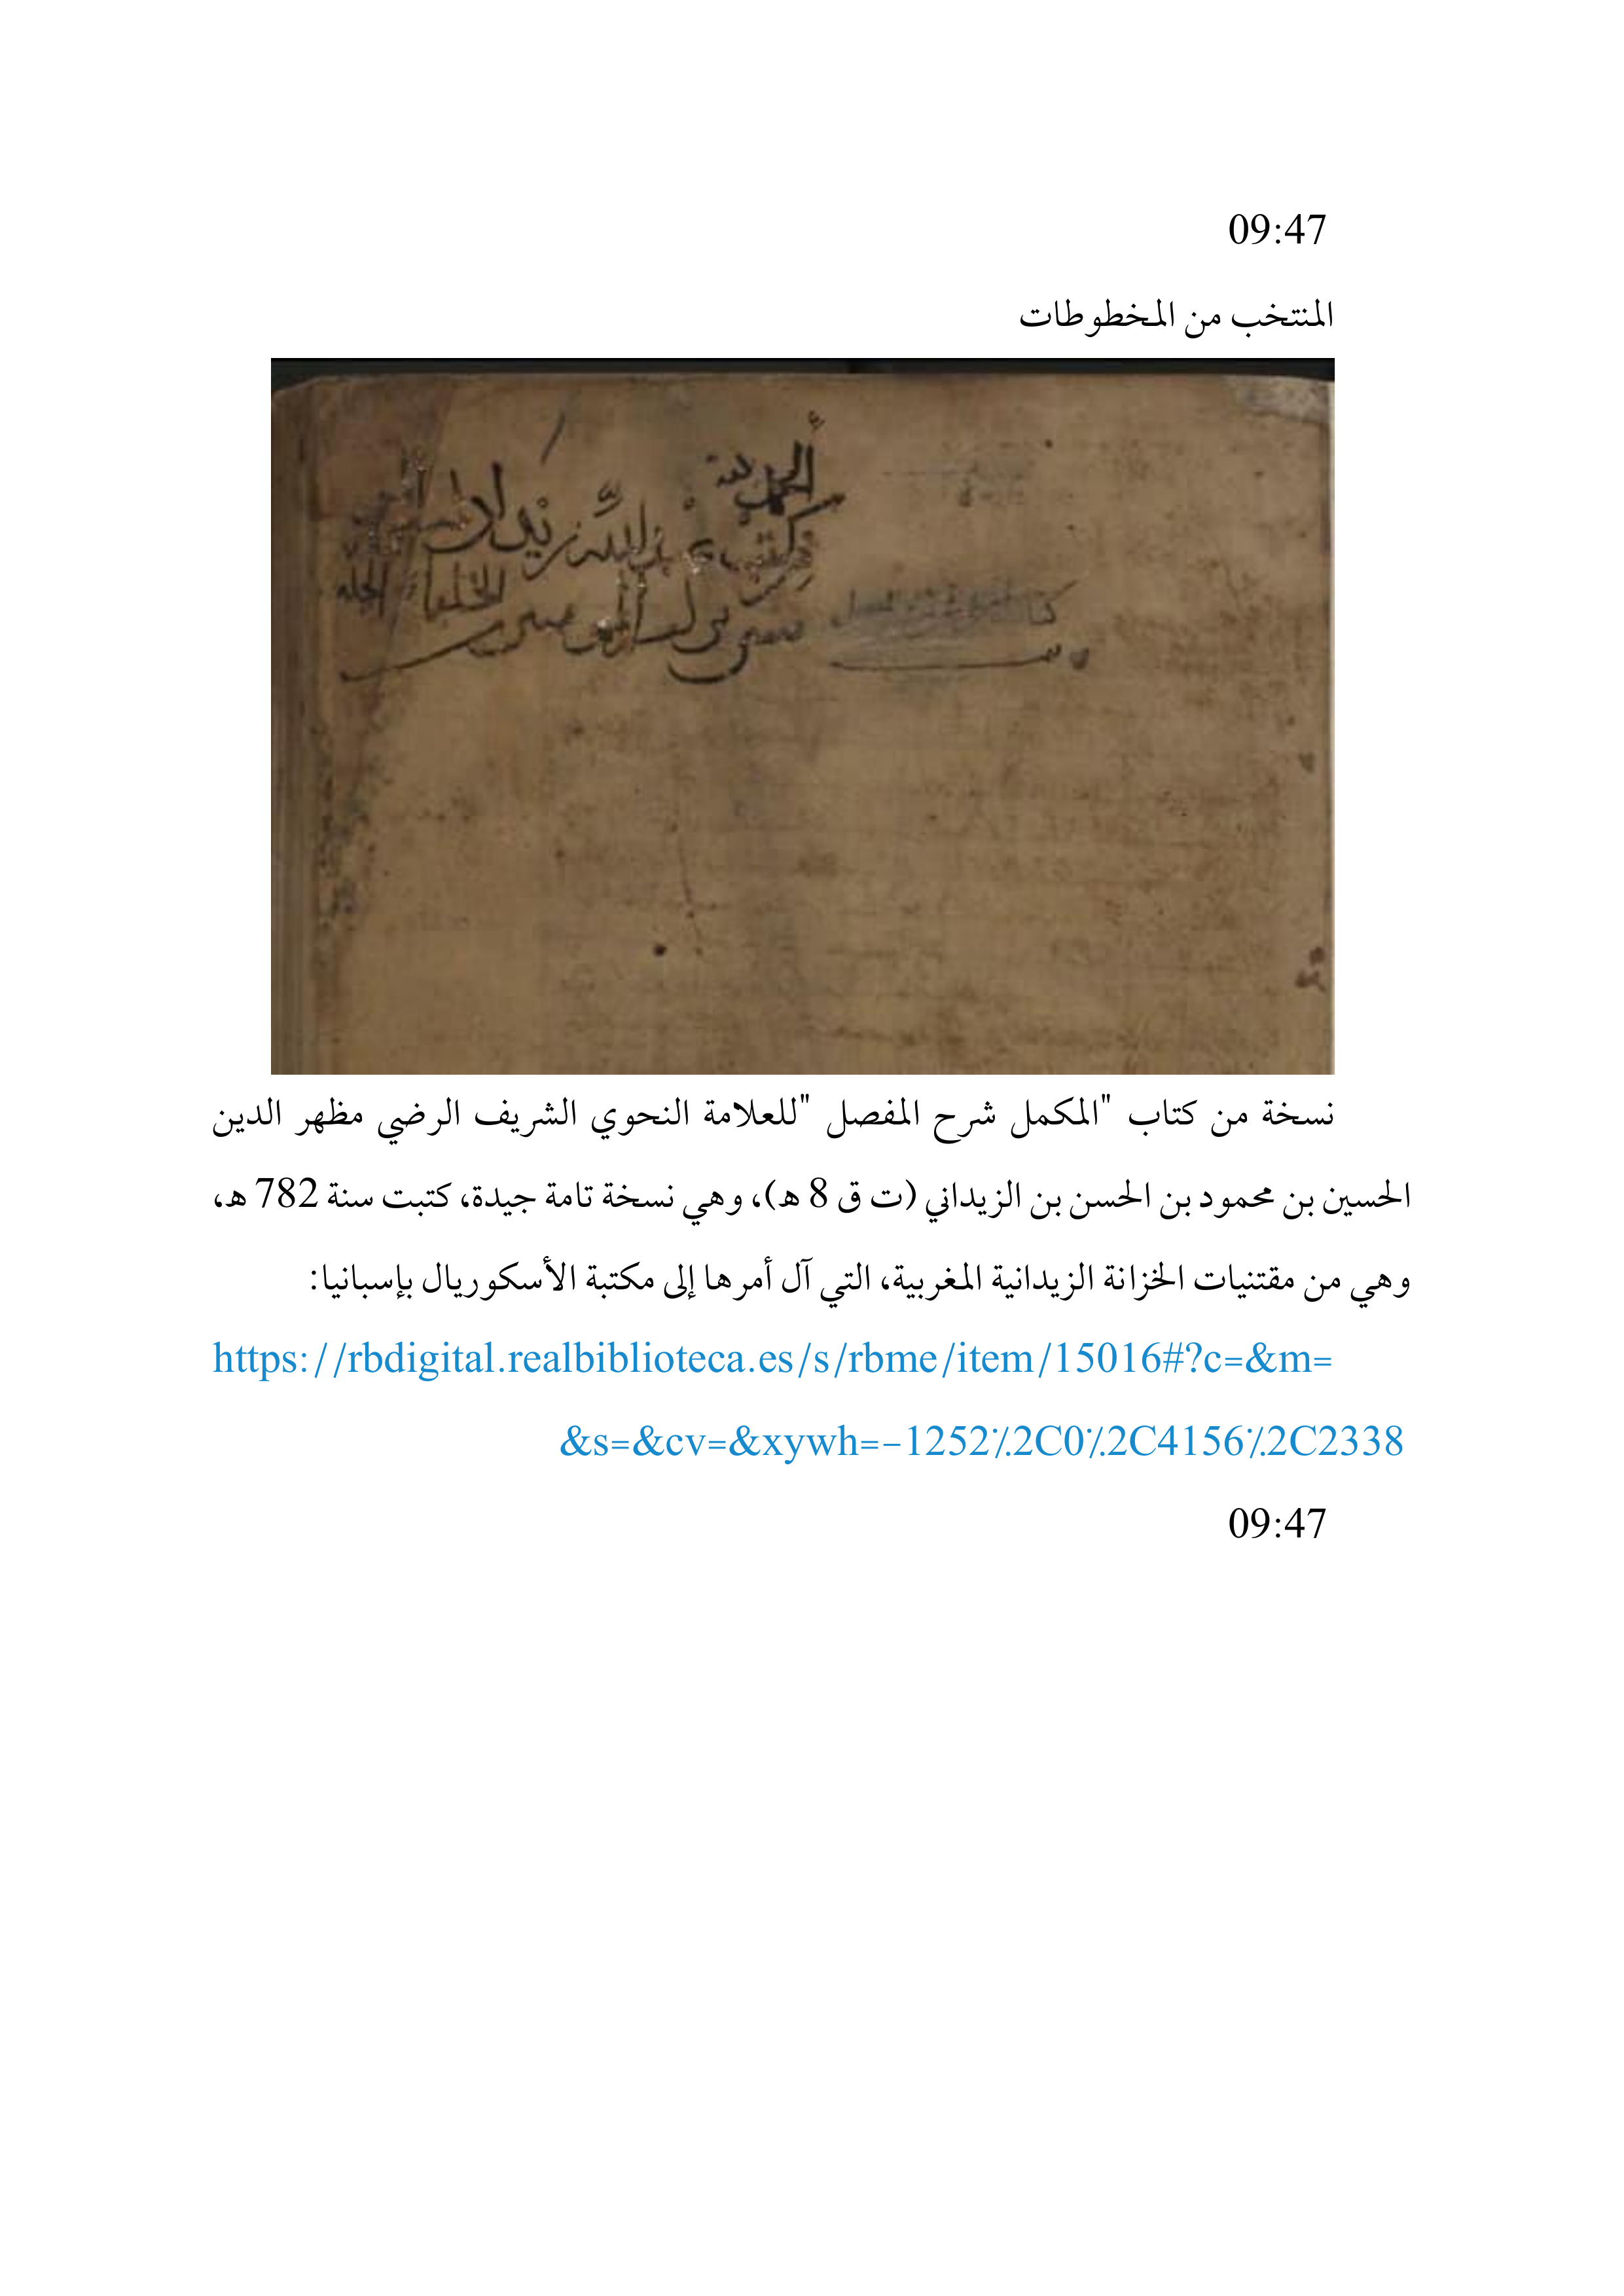 09:47
المنتخب من المخطوطات
الحمد لله
نسخة من كتاب "المكمل شرح المفصل "للعلامة النحوي الشريف الرضي مظهر الدين
الحسين بن محمود بن الحسن بن الزيداني (ت ق 8 هـ)، وهي نسخة تامة جيدة، كتبت سنة 782 هـ،
وهي من مقتنيات الخزانة الزيدانية المغربية، التي آل أمرها إلى مكتبة الأسكوريال بإسبانيا:
https://rbdigital.realbiblioteca.es/s/rbme/item/15016#?c=&m=
&s=&cv=&xywh=-1252%2C0%2C4156%2C2338
09:47